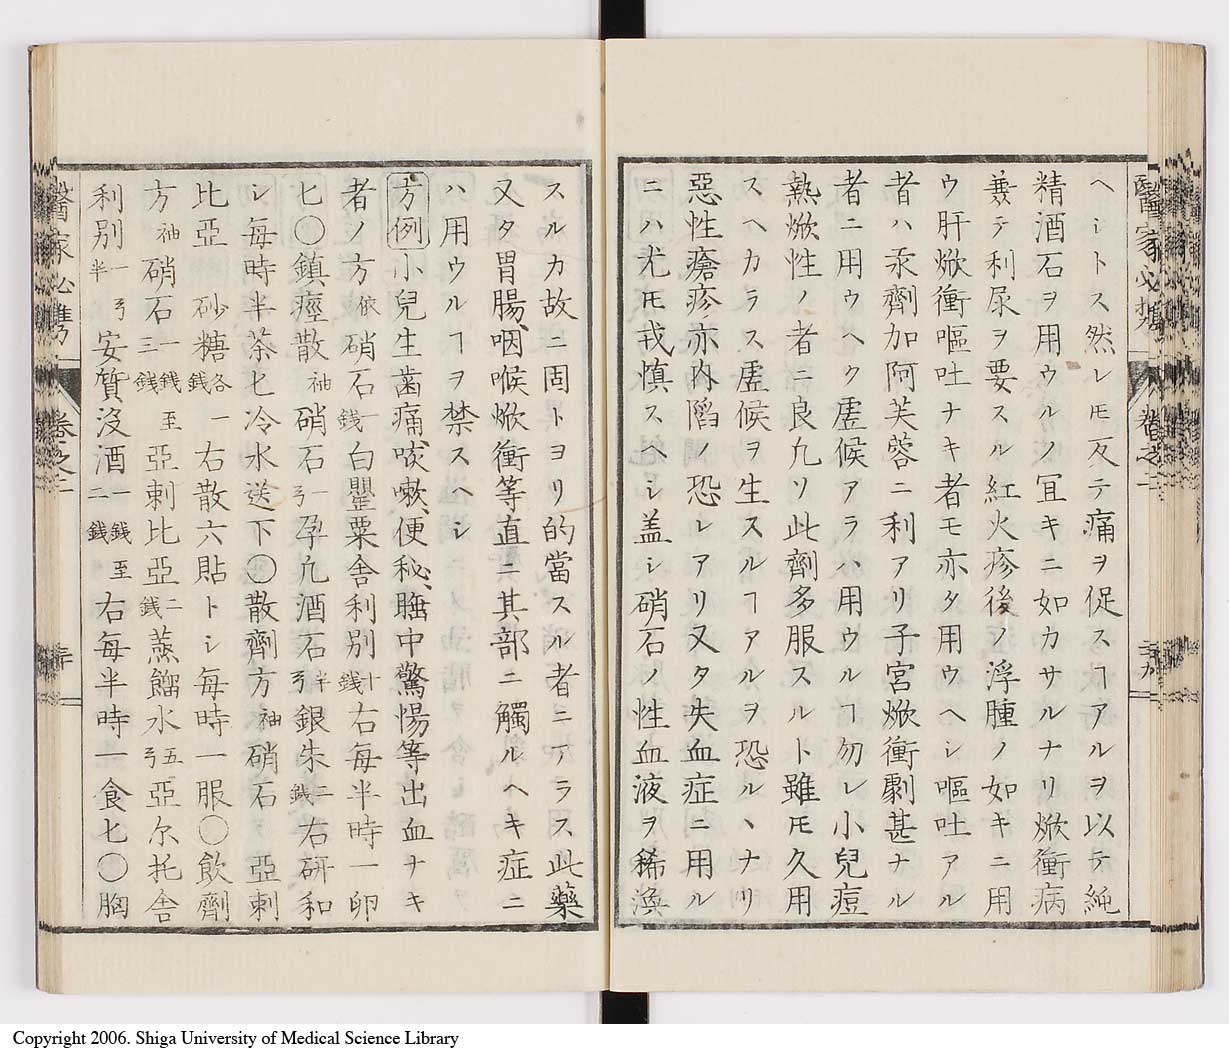 ヘシトス然レ𪜈反テ痛ヲ促スヿアルヲ以テ純
精酒石ヲ用ウルノ冝キニ如カサルナリ焮衝病
羙テ利尿ヲ要スル紅火疹後ノ浮腫ノ如キニ用
ウ肝焮衝嘔吐ナキ者モ亦タ用ウヘシ嘔吐アル
者ハ汞劑加阿芙蓉ニ利アリ子宮焮衝劇甚ナル
者ニ用ウヘク虚候アラハ用ウルヿ勿レ小兒痘
熱焮性ノ者ニ良凢ソ此劑多服スルト雖𪜈久用
スヘカラス虚候ヲ生スルヿアルヲ恐ルヽナリ
惡性瘡疹亦内陷ノ恐レアリ又タ失血症ニ用ル
ニハ尤𪜈戎慎スヘシ盖シ硝石ノ性血液ヲ稀渙
スルカ故ニ固トヨリ的當スル者ニアラス此藥
又タ胃腸、咽喉焮衝等直ニ其部ニ觸ルヘキ症ニ
ハ用ウルヿヲ禁スヘシ
方例 小兒生齒痛、咳嗽、便秘、睡中驚惕等出血ナキ
者ノ方依硝石一銭白罌粟舎利別十銭右毎半時一卵
匕〇鎮痙散袖硝石一弓孕凢酒石半弓銀朱二銭右研和
シ毎時半茶匕冷水送下〇散劑方袖硝石 亞剌
比亞 砂糖各一銭右散六貼トシ毎時一服〇飲劑
方袖硝石一銭至三銭亞剌比亞二銭蒸餾水五弓亞尓托舎
利別一弓半安質没酒一銭至二銭右毎半時一食匕〇胸
醫家必携
卷之二
醫家必雋
卷之二
Copyright 2006. Shiga University of Medical Science Library